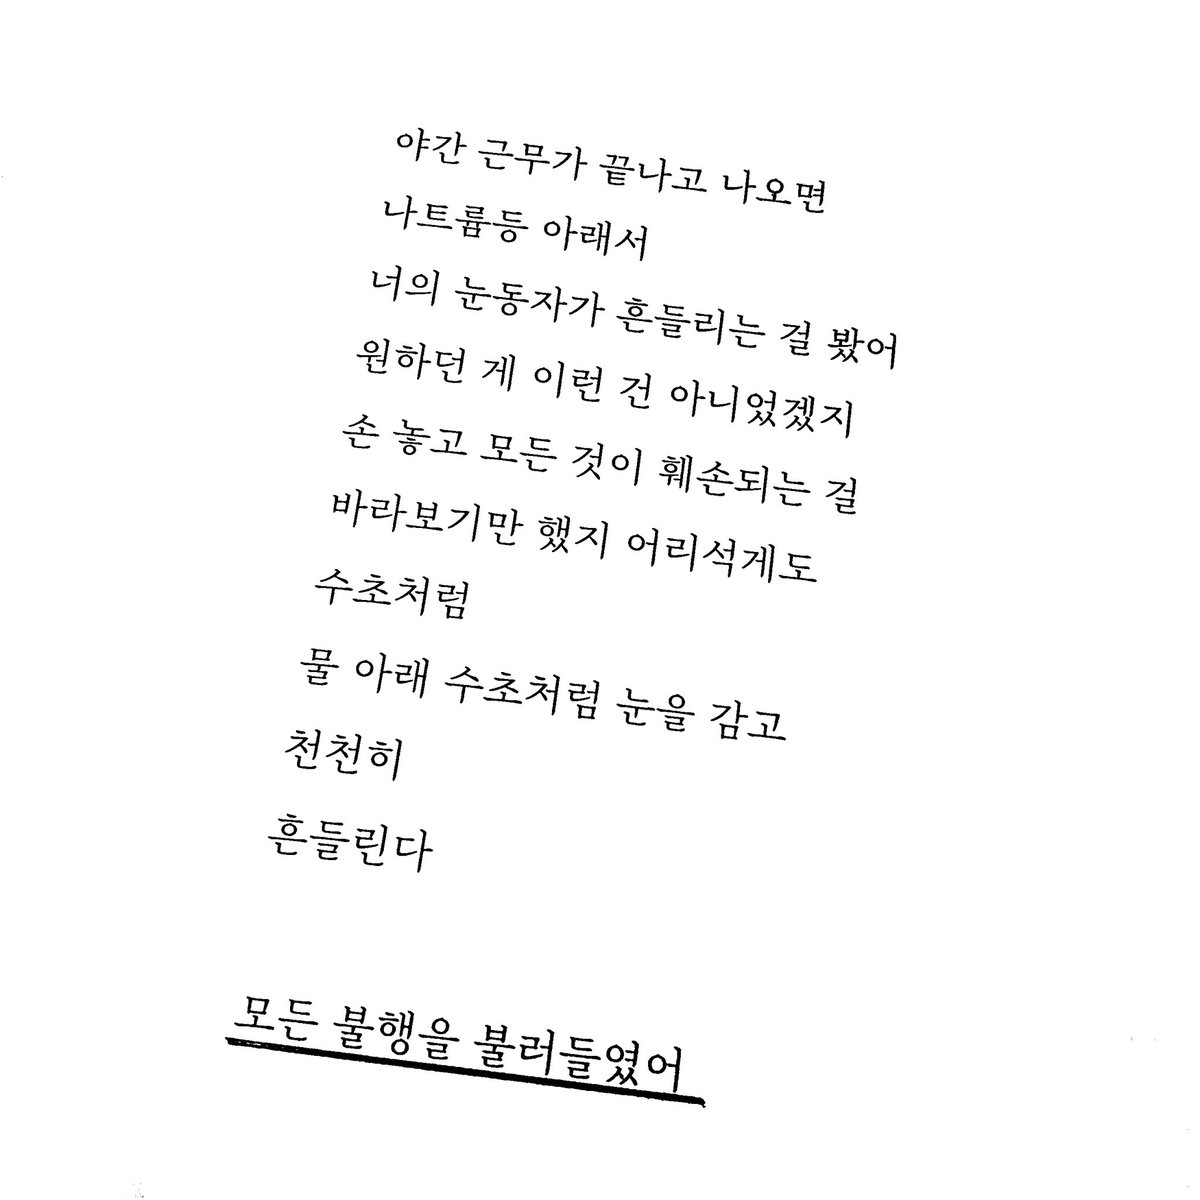 야간 근무가 끝나고 나오면
나트륨등 아래서
너의 눈동자가 흔들리는 걸 봤어
원하던 게 이런 건 아니었겠지
손 놓고 모든 것이 훼손되는 걸
바라보기만 했지 어리석게도
수초처럼
물 아래 수초처럼 눈을 감고
천천히
흔들린다
모든 불행을 불러들였어